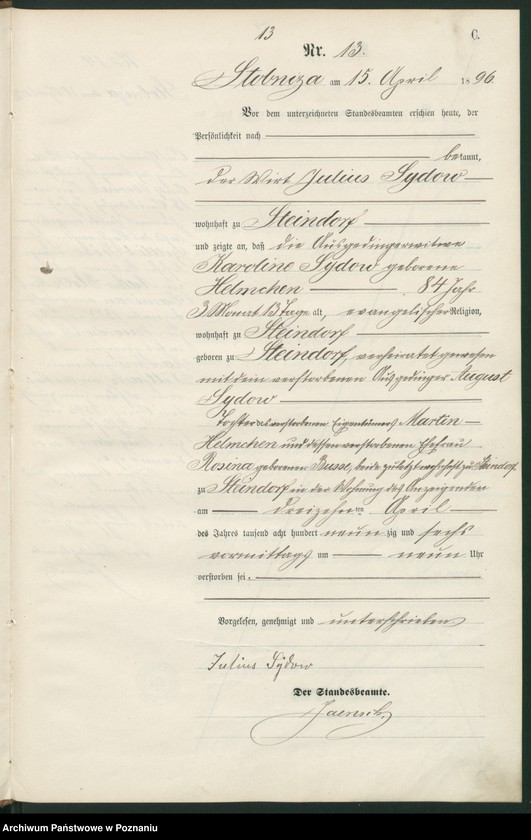 13
C.
Nr. 13.
Stobnica am 15. April 1896.
Vor dem unterzeichneten Standesbeamten erschien heute, der
Persönlichkeit nach
bekannt,
der Wirt Julius Sydow
wohnhaft zu Steindorf
und zeigte an, daß die Ausgedingerwitwe
Karoline Sydow geborene
Helmchen 84 Jahr
3 Monat 13 Tage alt, evangelischer Religion,
wohnhaft zu Steindorf
geboren zu Steindorf, verheiratet gewesen
mit dem verstorbenen Ausgedinger August
Sydow
Tochter des verstorbenen Eigentümers Martin
Helmchen und dessen verstorbenen Ehefrau
Rosina geborenen Busse, beide zuletzt wohnhaft zu Steindorf
zu Steindorf in der Wohnung des Anzeigenden
am dreizehnten April
des Jahres tausend acht hundert neunzig und sechs
vormittags um neun Uhr
verstorben sei.
Vorgelesen, genehmigt und unterschrieben
Julius Sydow
Der Standesbeamte.
Jaensch.
Archiwum Państwowe w Poznaniu